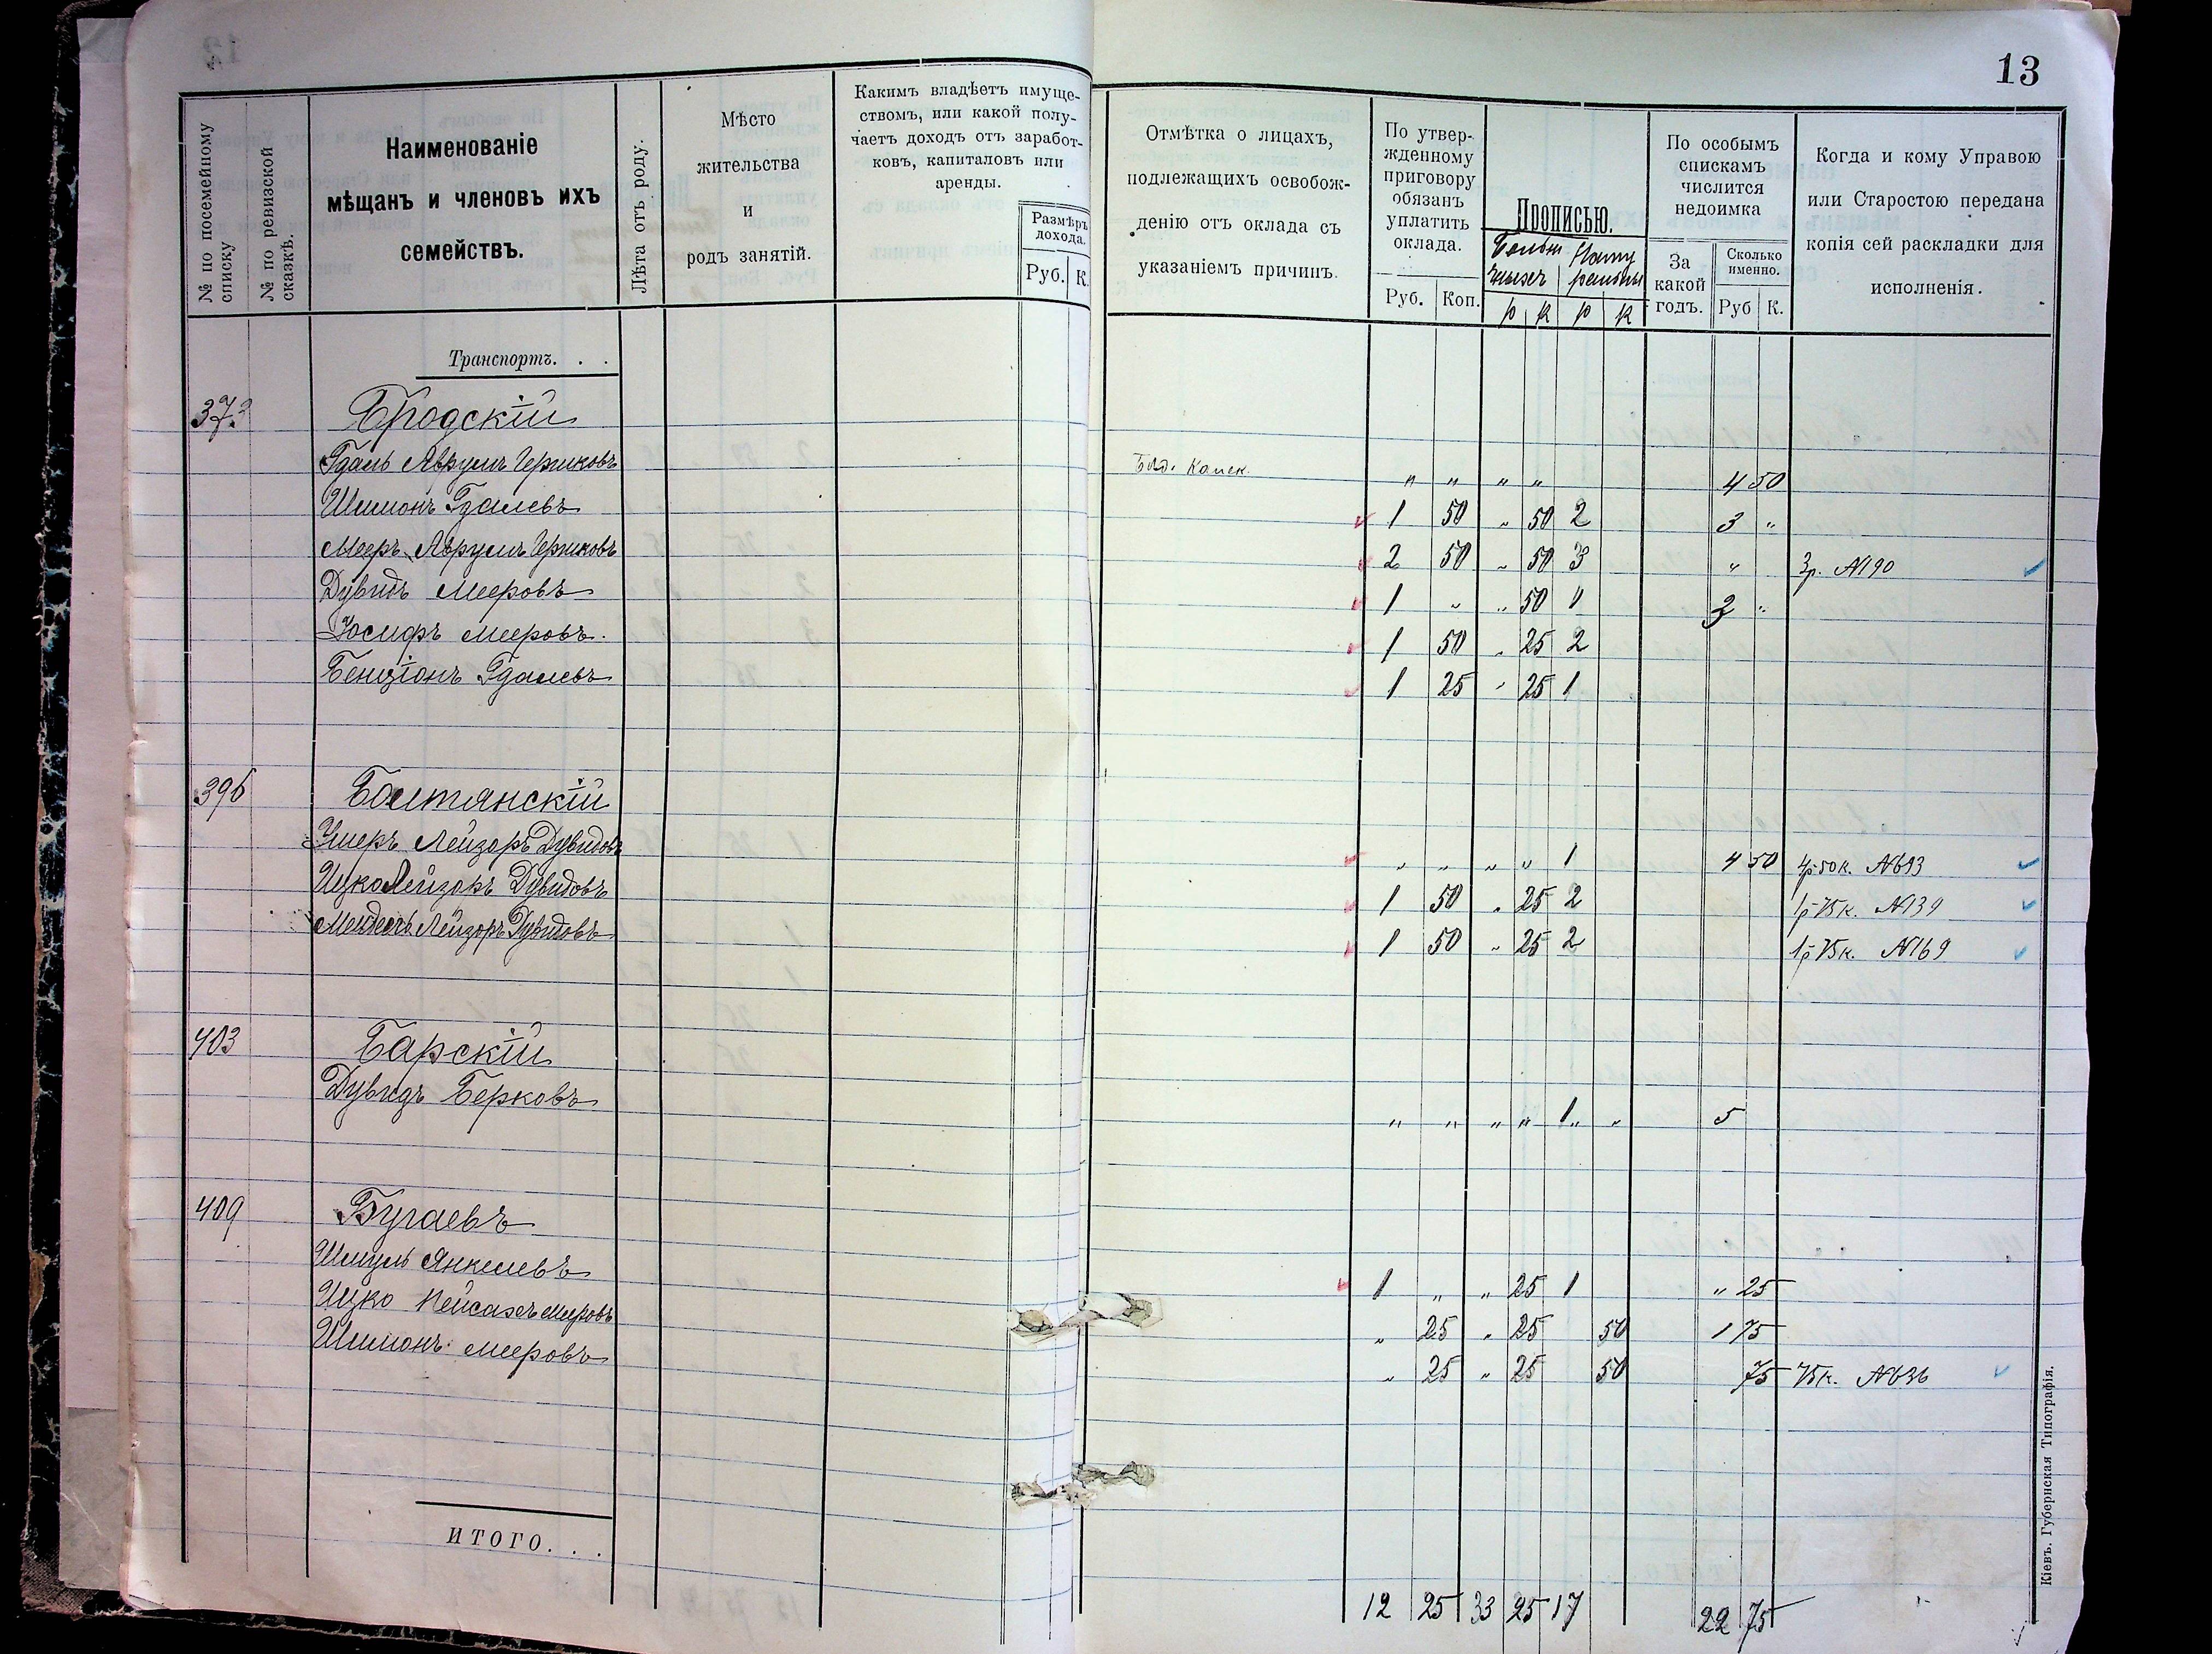 13
№ по посемейному списку
№ по ревизской сказкѣ.
Наименованіе
мѣщанъ и членовъ ихъ
семействъ.
Лѣта отъ роду.
Мѣсто
жительства
и
родъ занятій.
Какимъ владѣетъ имуще-
ствомъ, или какой полу-
чаетъ доходъ отъ заработ-
ковъ, капиталовъ или
аренды.
Размѣръ
дохода.
Руб. К.
Отмѣтка о лицахъ,
подлежащихъ освобож-
денію отъ оклада съ
указаніемъ причинъ.
По утвер-
жденному
приговору
обязанъ
уплатить
оклада.
Руб. Коп.
Прописью.
р к р к
По особымъ
спискамъ
числится
недоимка
За
какой
годъ.
Сколько
именно.
Руб К.
Когда и кому Управою
или Старостою передана
копія сей раскладки для
исполненія.
Транспортъ. . .
373 Бродскій
Гдаль Аврумъ Гершковъ " " " " 4 50
Шимонъ Гдалевъ 1 50 " 50 2 3 "
Мееръ Аврумъ Гершковъ 2 50 " 50 3 " 3р. №190
Дувидъ Мееровъ 1 " " 50 1 2 "
Іосифъ Мееровъ. 1 50 " 25 2
Бенціонъ Гдалевъ 1 25 " 25 1
396 Балтянскій
Ушеръ Лейзоръ Дувидовъ " " " " 1 4 50 4р 50к. №693
Ицко Лейзоръ Дувидовъ 1 50 " 25 2 1р 75к. №139
Мендель Лейзоръ Дувидовъ 1 50 " 25 2 1р 75к. №169
403 Барскій
Дувидъ Берковъ " " " " 1 " " 5
409 Бугаевъ
Шмуль Янкелевъ 1 " " 25 1 " 25
Ицко Пейсахъ Мееровъ " 25 " 25 50 1 75
Шимонъ Мееровъ " 25 " 25 50 75 75к. №636
ИТОГО. . .
12 25 33 25 17 22 75
Кіевъ. Губернская Типографія.